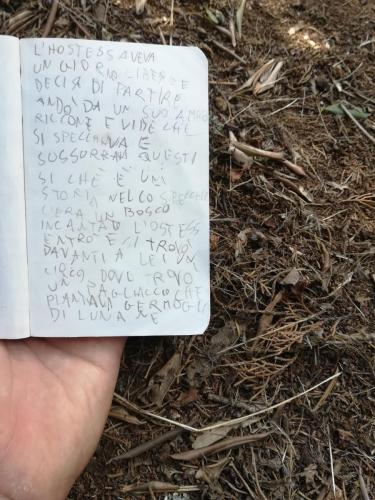 L'HOSTESS AVEVA
UN GIORNO LIBERO E
DECISE DI PARTIRE
ANDÒ DA UN SUO AMICO
RICCONE E VIDE CHE
SI SPECCHIAVA E
SUSSURRAVA QUESTI
SI CHE È UNA
STORIA NELLO SPECCHIO
C'ERA UN BOSCO
INCANTATO L'HOSTESS
ENTRÒ E SI TROVÒ
DAVANTI A LEI UN
CIRCO, DOVE TROVO
UN PAGLIACCIO CHE
PIANTAVA GERMOGLI
DI LUNA NE